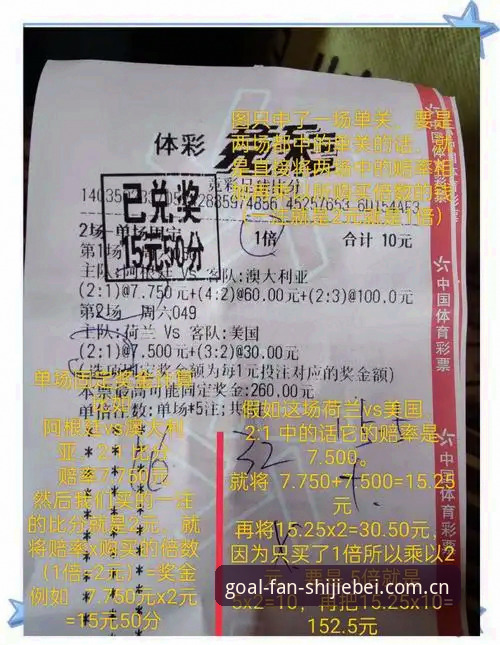 图只中了一场单关，要是
两场都中的单关的话，就
是直接将两场中的赔率相
（一注就是2元就是1倍）
体彩
已兑奖
15元50分
2场-单场固定
1倍
合计 10元
第1场
主队:阿根廷 Vs 客队:澳大利亚
(2:1)@7.750元+(4:2)@60.00元+(2:3)@100.0元
第2场 周六049
主队:荷兰 Vs 客队:美国
(2:1)@7.500元+(3:2)@30.00元
(选项固定奖金额为每1元投注对应的奖金额)
本票最高可能固定奖金:260.00元
单倍注数:单场*5注;共
单场固定奖金计算
阿根廷vs澳大利
亚：2:1 比分
赔率7.750元
然后我们买的一注
的比分就是2元，就
将赔率x购买的倍数
（1倍=2元）=奖金
例如 7.750元x2元
=15元50分
假如这场荷兰vs美国
2:1 中的话它的赔率是
7.500。
就将 7.750+7.500=15.25
元
再将15.25x2=30.50元，
因为只买了1倍所以乘以2
goal-fan-shijiebei.com.cn
5x2=10，再把15.25x10=
152.5元
中国体育彩票
中国体育彩票
中国体育彩票